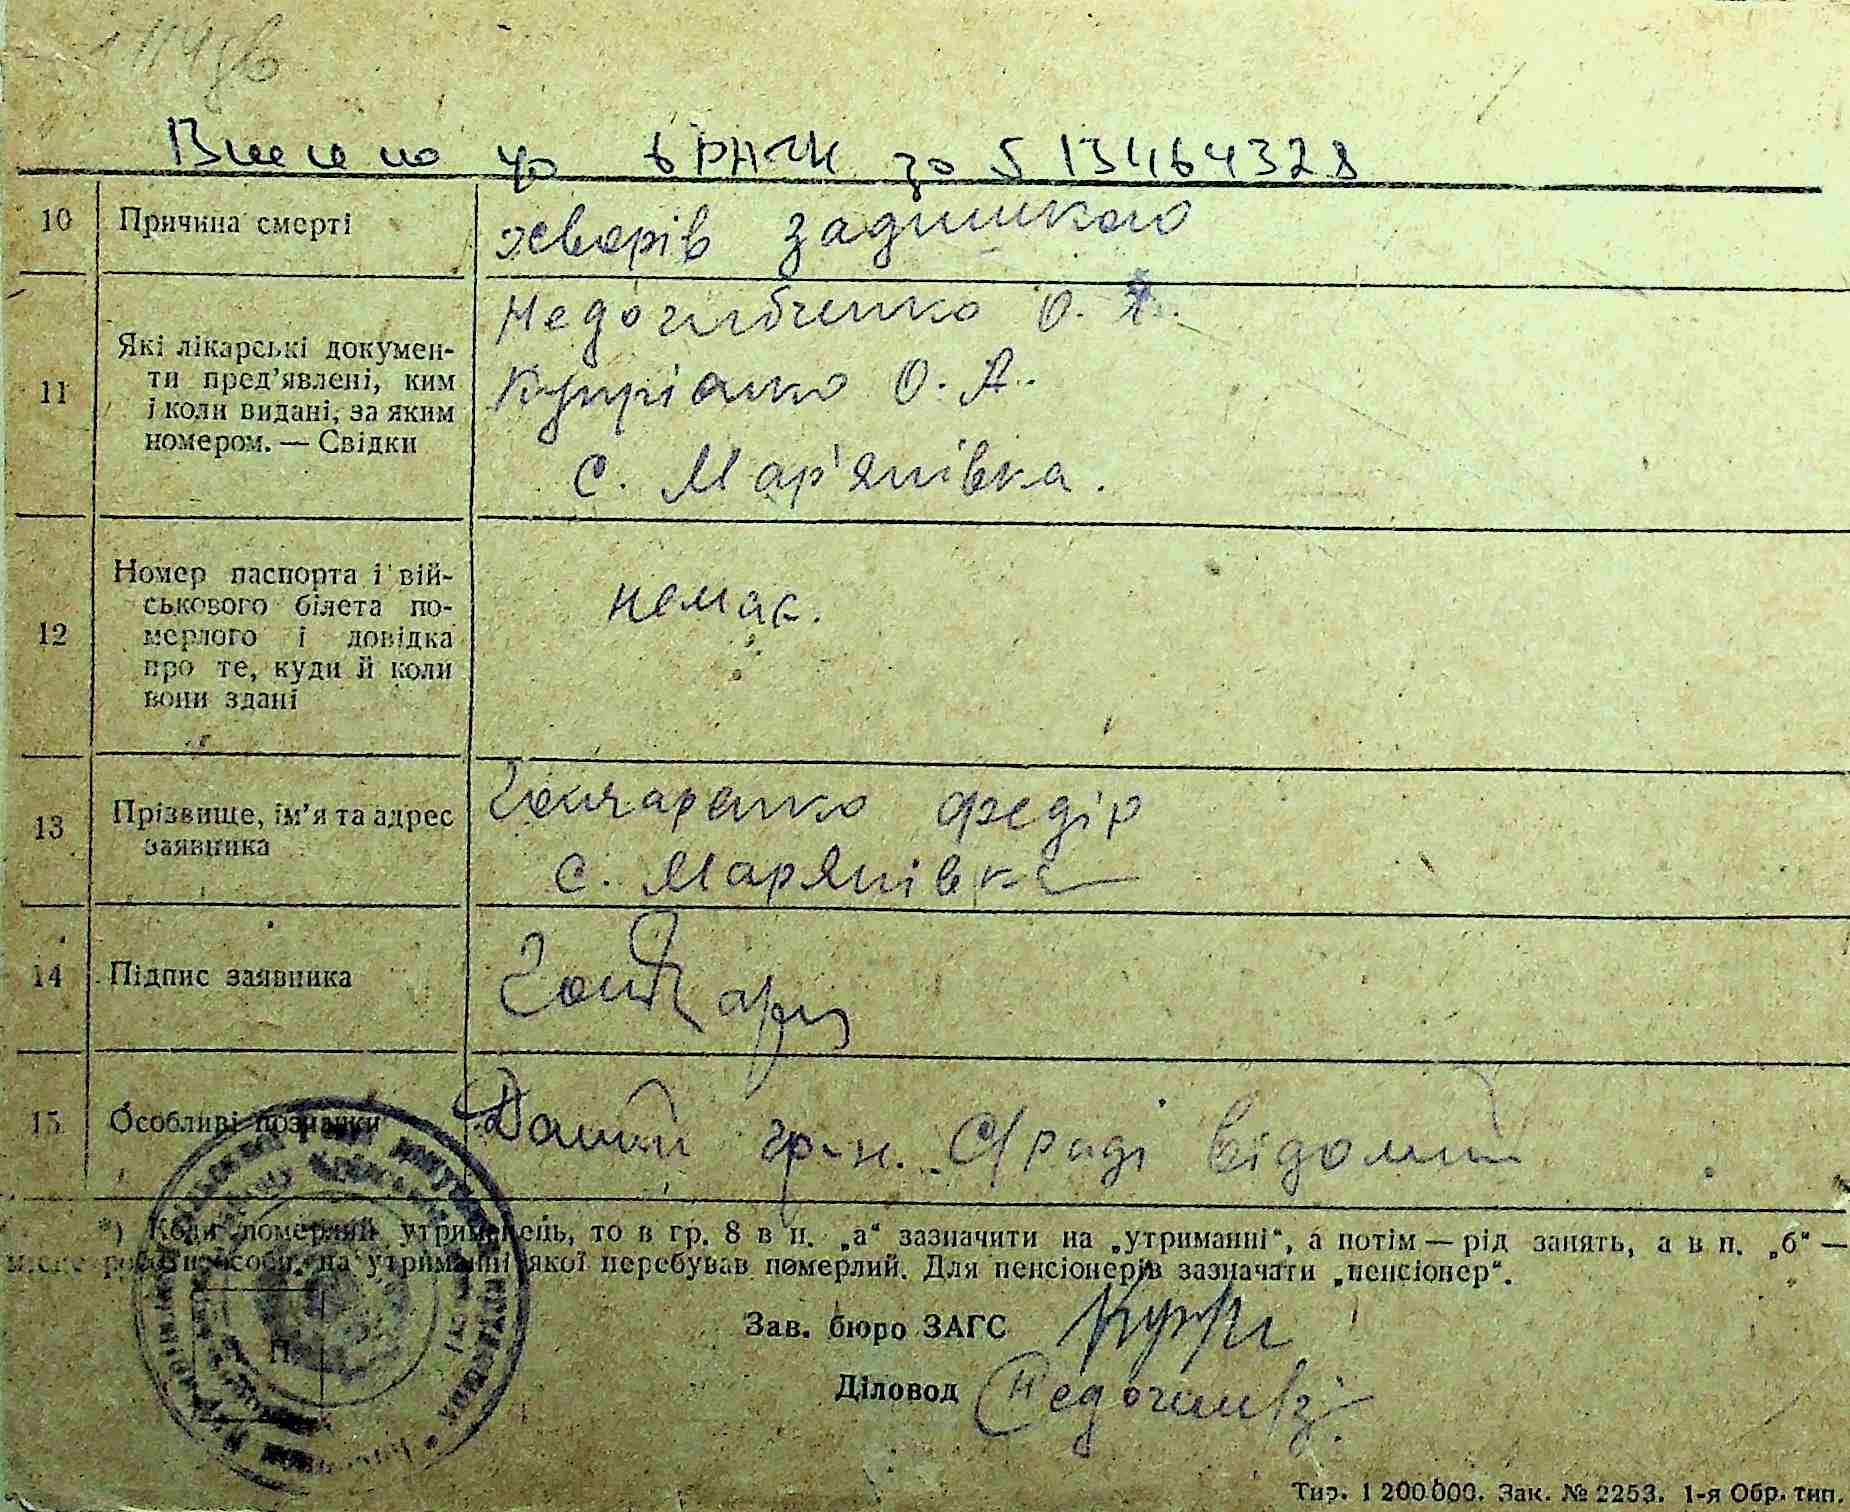 Внесено до ДРАЦС за 5 13464328
10 Причина смерті хворів задишкою
11 Які лікарські докумен-
ти пред'явлені, ким
і коли видані, за яким
номером. — Свідки
Недогибченко О.
Купріянко О. А.
с. Мар'янівка.
12 Номер паспорта і вій-
ськового білета по-
мерлого і довідка
про те, куди й коли
вони здані
немає.
13 Прізвище, ім'я та адрес
заявника
Гончаренко Федір
с. Мар'янівка
14 Підпис заявника Гончар
15 Особливі позначки Даний гр-н. С/раді відомий
*) Коли померлий утриманець, то в гр. 8 в п. „а“ зазначити на „утриманні“, а потім — рід занять, а в п. „б“ —
місце роботи особи, на утриманні якої перебував померлий. Для пенсіонерів зазначати „пенсіонер“.
Зав. бюро ЗАГС
Діловод
М. П.
Тир. 1 200 000. Зак. № 2253. 1-я Обр. тип.